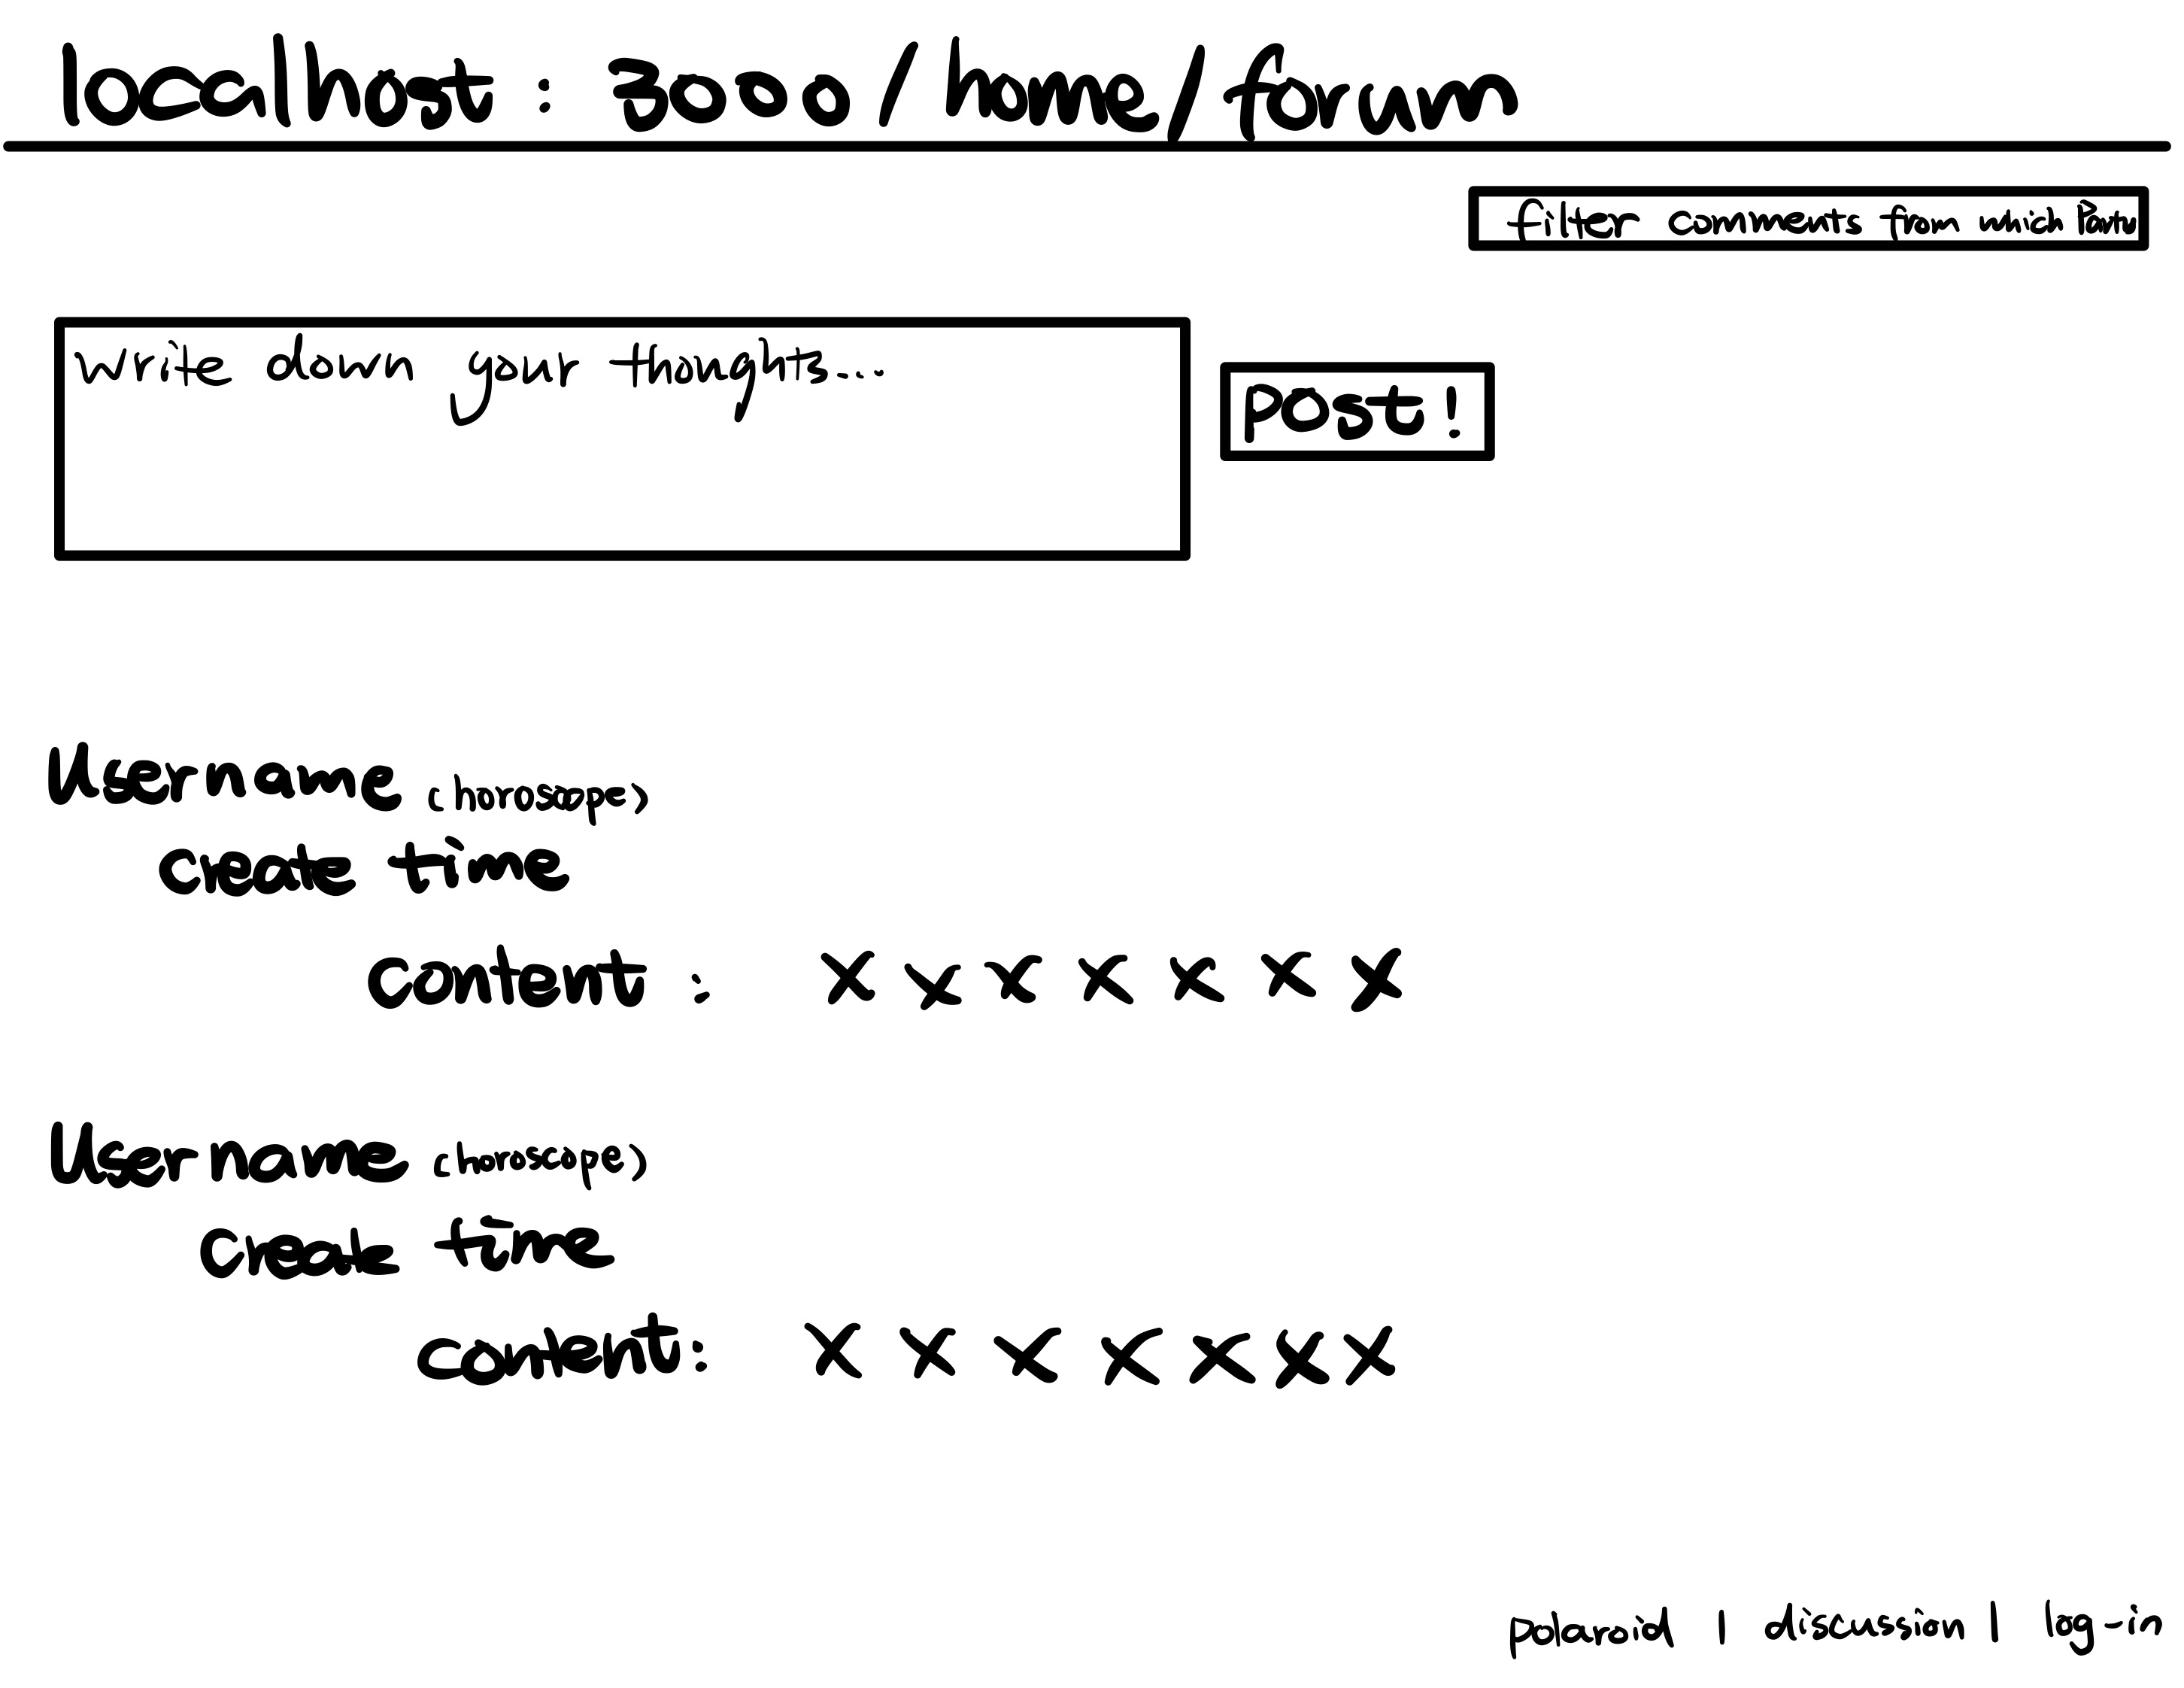 localhost: 3000/home/forum
filter comments from which
write down your thoughts...
Post!
Username (horoscope)
create time
content: x x x x x x x
Username (horoscope)
Create time
content: x x x x x x x
polaroid | discussion | log-in